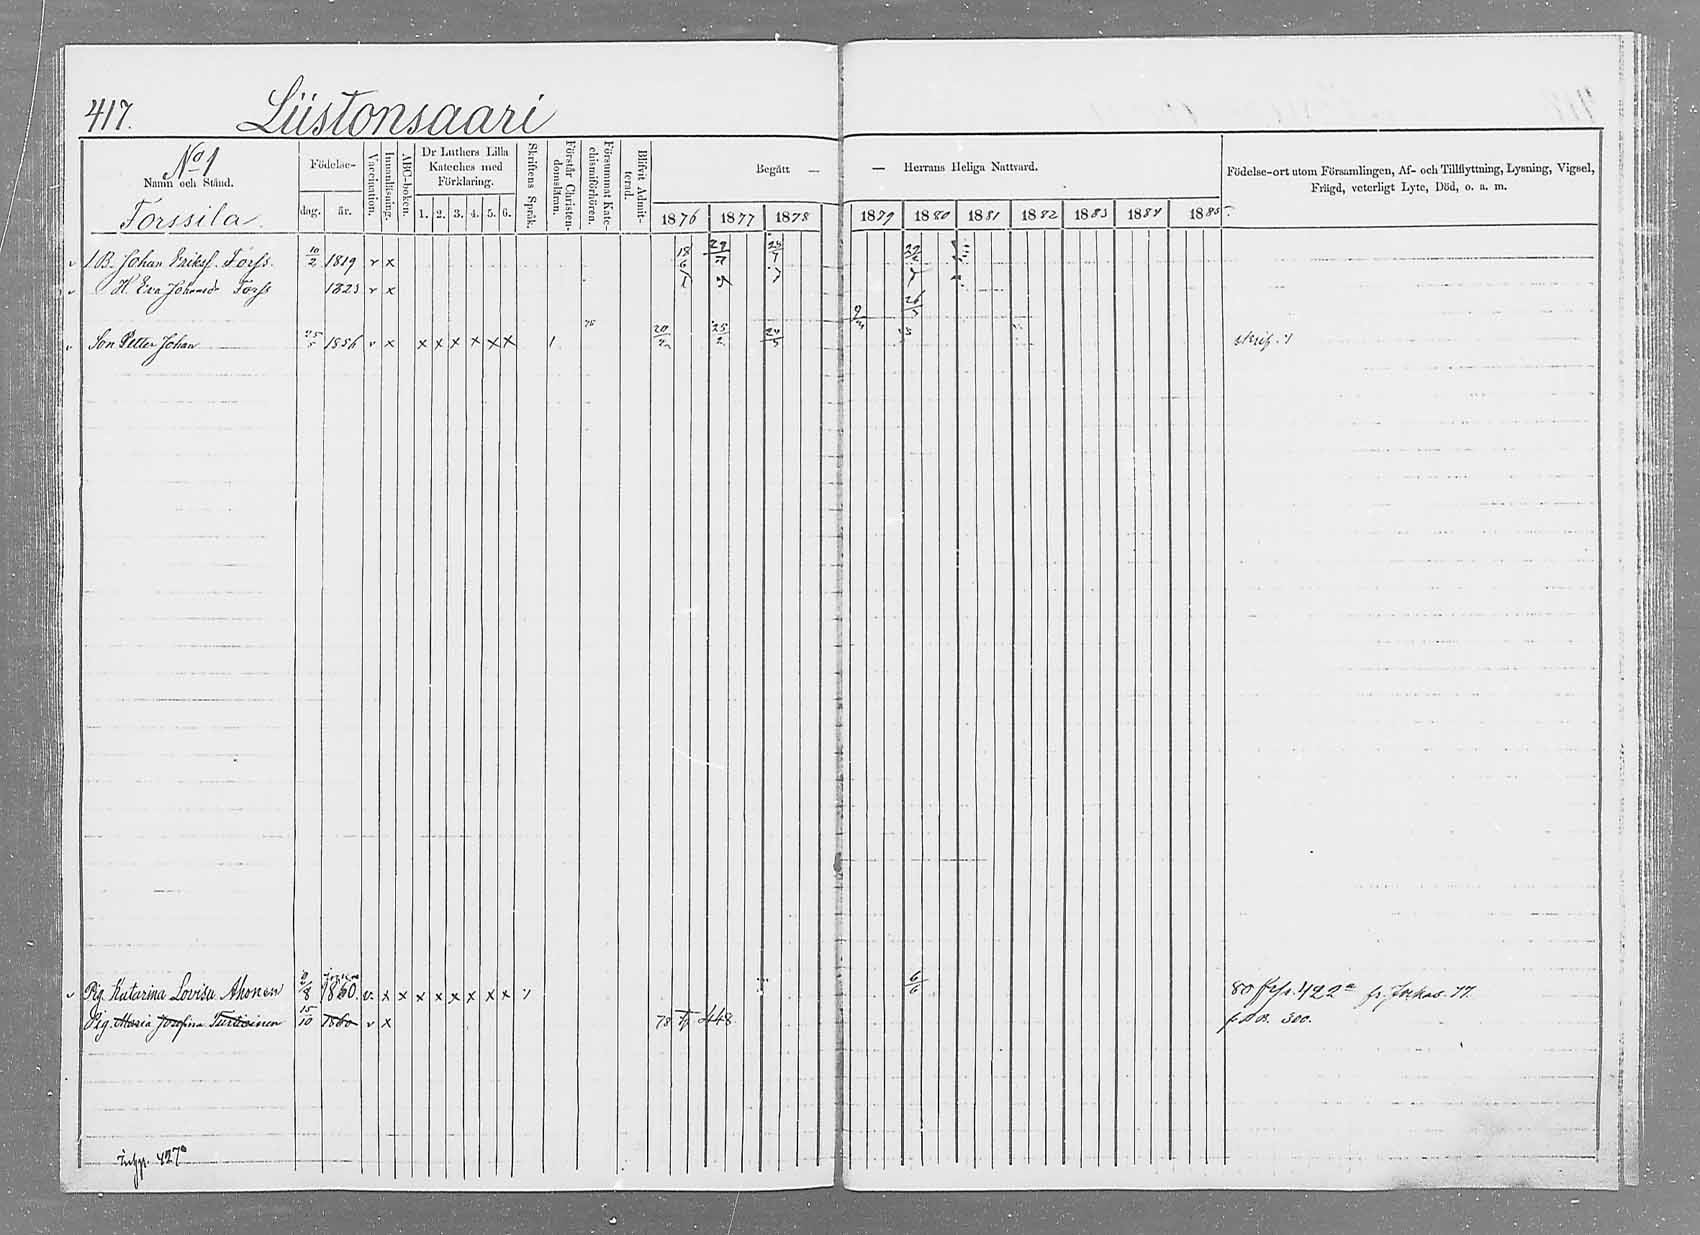 417. Liistonsaari
No 1
Namn och Stånd.
Forssila
Födelse-
dag. år.
Vaccination.
Innanläsning.
ABC-boken.
Dr Luthers Lilla
Kateches med
Förklaring.
1. 2. 3. 4. 5. 6.
Skriftens Språk.
Förstår Christen-
domsläran.
Försummat Kate-
chismiförhören.
Blifvit Admit-
terad.
Begått —
1876 1877 1878
— Herrans Heliga Nattvard.
1879 1880 1881 1882 1883 1884 1885
Födelse-ort utom Församlingen, Af- och Tillflyttning, Lysning, Vigsel,
Frägd, veterligt Lyte, Död, o. a. m.
v 1. B. Johan Eriks. Forss. 10/2 1819 v x
v H. Eva Johansdr Forss 1823 v x
26/5
v Son Petter Johan 1856 v x x x x x x x 1 75 20/2 25/2 24/5
v Pig. Katarina Lovisa Ahonen 9/8 1860. v. x x x x x x x x 6/6 80 422a 77.
Pig. Maria Josefina Turtiainen 15/10 1860 v x 78 448. 300.
427a